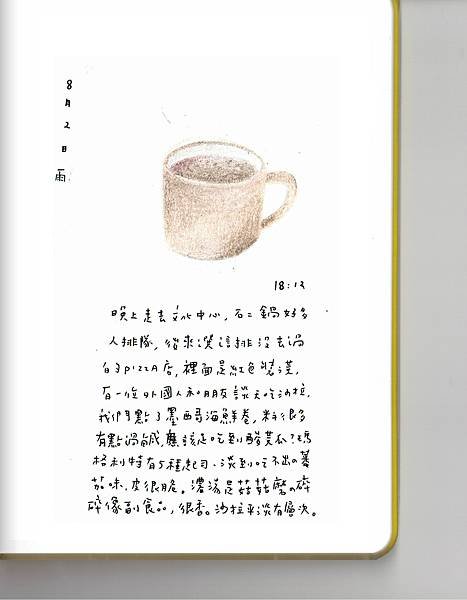 8月2日
雨
18:13
晚上走去文化中心,石二鍋好多
人排隊,後來選這排沒去過
的pizza店,裡面是紅色裝潢,
有一位外國人和朋友談天吃沙拉,
我們點了墨西哥海鮮卷,料很多
有點過鹹,應該是吃到酸黃瓜?瑪
格利特有5種起司,淡到吃不出の蕃
茄味,皮很脆。濃湯是菇菇磨の碎
碎像副食品,很香。沙拉平淡有層次。